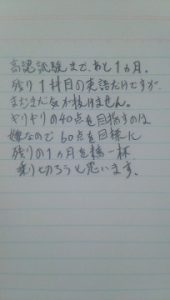 高認試験まで、あと1ヵ月。
残り1科目の英語だけですが、
まだまだ気が抜けません。
ギリギリの40点を目指すのは
嫌なので60点を目標に
残りの1ヵ月を精一杯
乗り切ろうと思います。